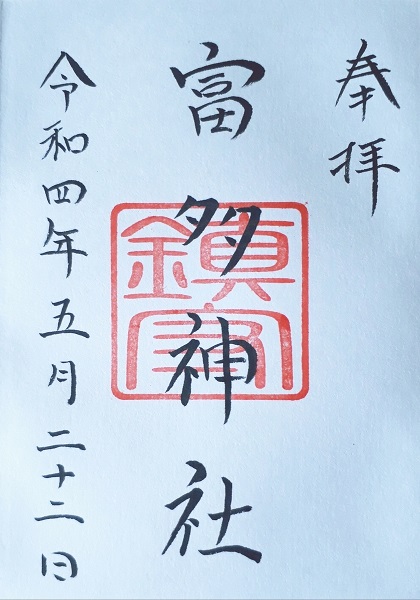 奉拝
富多神社
令和四年五月二十二日
鎮